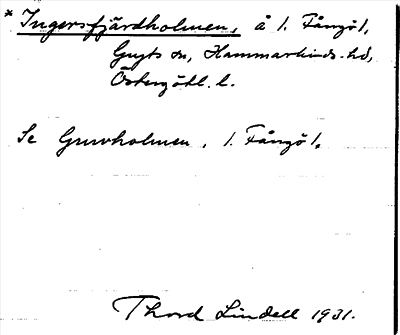 * Ingersfjärdholmen, å l. Fångö l,
Gryts sn, Hammarkinds hd,
Östergötl. l.
Se Gruvholmen, l. Fångö l,
Thord Lindell 1931.